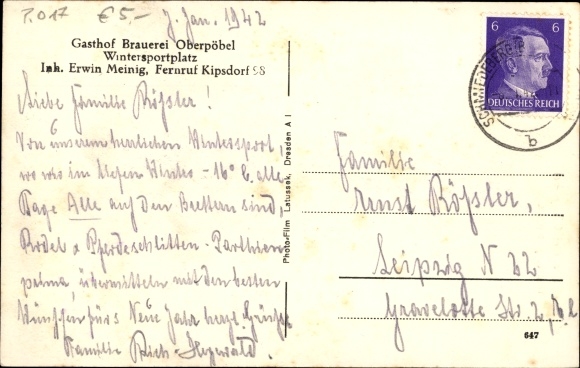 7.017 € 5,-
7. Jan. 1942
Gasthof Brauerei Oberpöbel
Wintersportplatz
Inh. Erwin Meinig, Fernruf Kipsdorf 98
Liebe Familie Rößler!
Von unserem herrlichen Wintersport -
wo wir im tiefen Winter - 16° C. alle
Tage Alle auf den Brettern sind,
Rodel & Pferdeschlitten - Parthien
übermitteln mit den besten
Wünschen fürs Neue Jahr herzl. Grüße
Familie
Photo-Film - Latussek, Dresden A 1
6 6
DEUTSCHES REICH
SCHMIEDEBERG
b
Familie
Ernst Rößler,
Leipzig N 22
Gravelotte Str. 2,
647